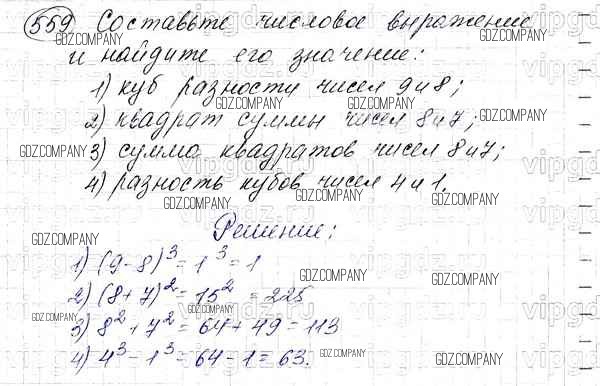 559 Составьте числовое выражение
и найдите его значение:
1) куб разности чисел 9 и 8;
2) квадрат суммы чисел 8 и 7;
3) сумма квадратов чисел 8 и 7;
4) разность кубов чисел 4 и 1.
Решение:
1) (9-8)³=1³=1
2) (8+7)²=15²=225
3) 8²+7²=64+49=113
4) 4³-1³=64-1=63.
GDZ.COMPANY
vipgdz.ru